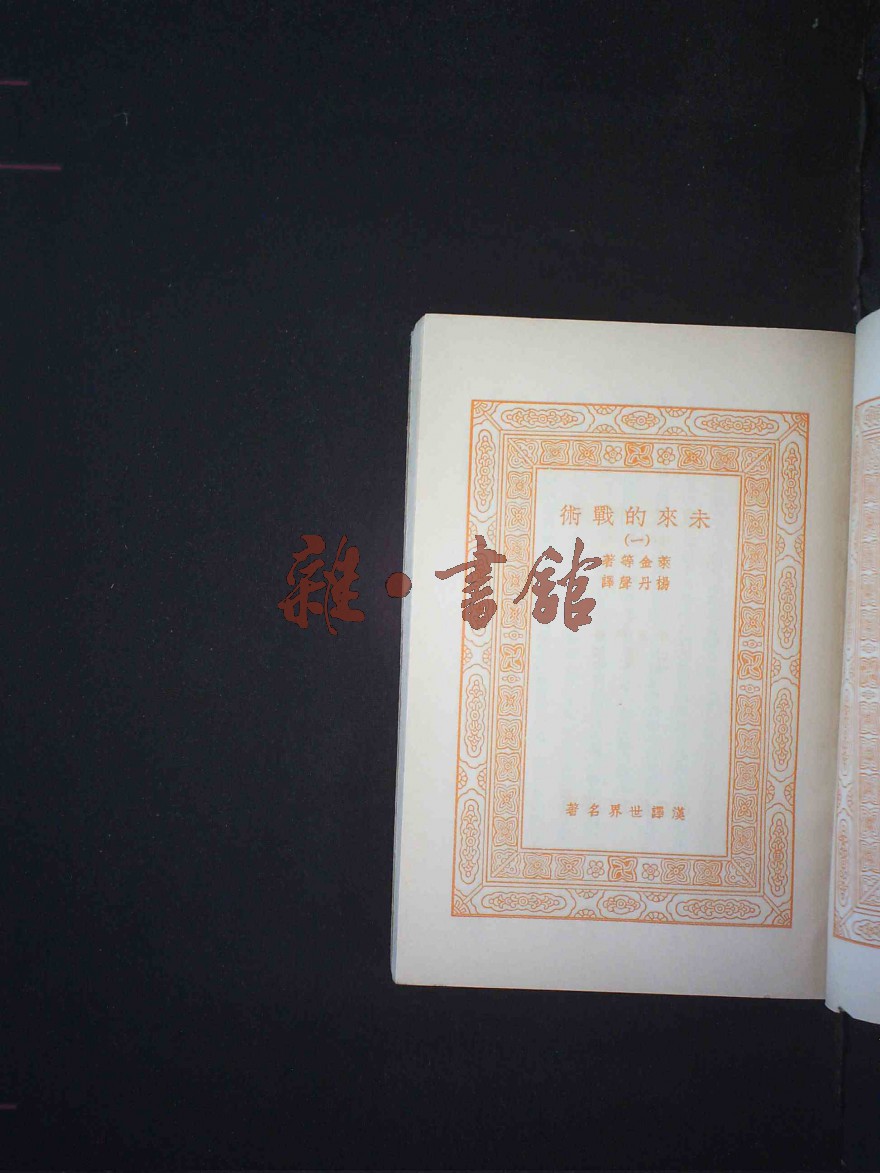 未來的戰術
(一)
萊金等著
楊丹聲譯
雜·書館
漢譯世界名著